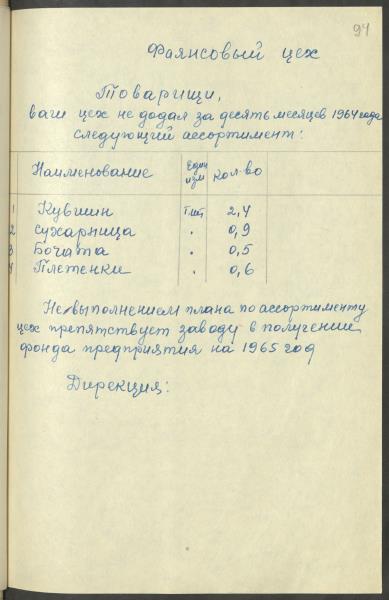 94
Фаянсовый цех
Товарищи,
ваш цех не додал за десять месяцев 1964 года
следующий ассортимент:
Наименование Един изм кол-во
1 Кувшин т.шт 2,4
2 сухарница " 0,9
3 Бочата " 0,5
4 Плетенки " 0,6
Невыполнением плана по ассортименту
цех препятствует заводу в получении
фонда предприятия на 1965 год
Дирекция: